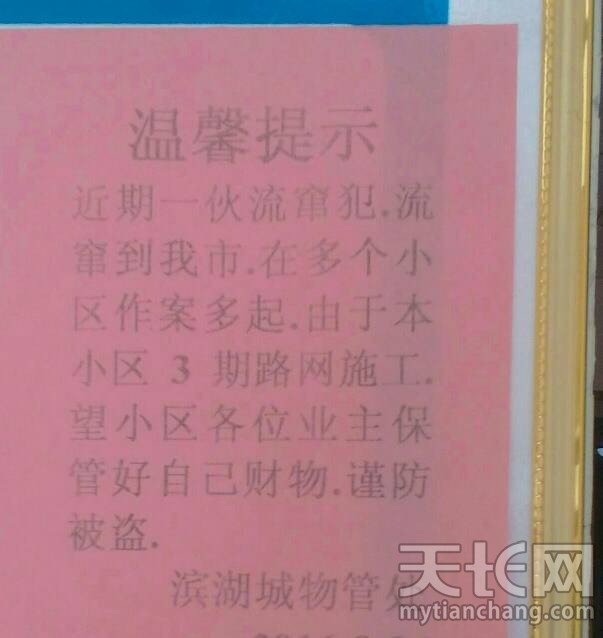 温馨提示
近期一伙流窜犯.流
窜到我市.在多个小
区作案多起.由于本
小区 3 期路网施工.
望小区各位业主保
管好自己财物.谨防
被盗.
滨湖城物管处
天长网
mytianchang.com